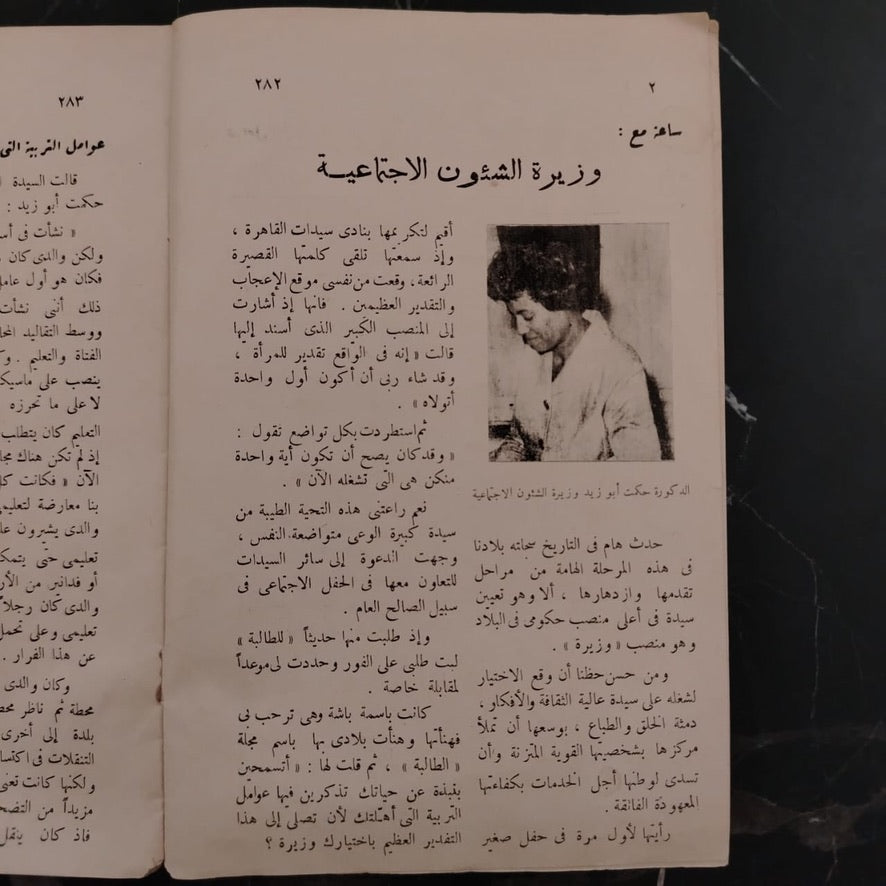 ٢
٢٨٢
ساعة مع :
وزيرة الشئون الاجتماعية
الدكورة حكمت أبو زيد وزيرة الشئون الاجتماعية
حدث هام فى التاريخ سجلته بلادنا
فى هذه المرحلة الهامة من مراحل
تقدمها وازدهارها ، ألا وهو تعيين
سيدة فى أعلى منصب حكومى فى البلاد
وهو منصب « وزيرة » .
ومن حسن حظنا أن وقع الاختيار
لشغله على سيدة عالية الثقافة والأفكار ،
دمثة الخلق والطباع ، بوسعها أن تملأ
مركزها بشخصيتها القوية المتزنة وأن
تسدى لوطنها أجل الخدمات بكفاءتها
المعهودة الفائقة .
رأيتها لأول مرة فى حفل صغير
أقيم لتكريمها بنادى سيدات القاهرة ،
وإذ سمعتها تلقى كلمتها القصيرة
الرائعة ، وقعت من نفسى موقع الإعجاب
والتقدير العظيمين . فانها إذ أشارت
إلى المنصب الكبير الذى أسند إليها
قالت « إنه فى الواقع تقدير للمرأة ،
وقد شاء ربى أن أكون أول واحدة
أتولاه » .
ثم استطردت بكل تواضع تقول :
« وقد كان يصح أن تكون أية واحدة
منكن هى التى تشغله الآن » .
نعم راعتنى هذه التحية الطيبة من
سيدة كبيرة الوعى متواضعة النفس ،
وجهت الدعوة إلى سائر السيدات
للتعاون معها فى الحقل الاجتماعى فى
سبيل الصالح العام .
وإذ طلبت منها حديثاً « للطالبة »
لبت طلبى على الفور وحددت لى موعداً
لمقابلة خاصة .
كانت باسمة باشة وهى ترحب بى
فهنأتها وهنأت بلادى بها باسم مجلة
« الطالبة » ، ثم قلت لها : « أتسمحين
بنبذة عن حياتك تذكرين فيها عوامل
التربية التى أهلتك لأن تصلى إلى هذا
التقدير العظيم باختيارك وزيرة ؟
٢٨٣
عوامل التربية التى
قالت السيدة
حكمت أبو زيد :
« نشأت فى
ولكن والدى كان
فكان هو أول
ذلك أننى نشأت
ووسط التقاليد
الفتاة والتعليم .
ينصب على
لا على ما تحرزه
التعليم كان يتطلب
إذ لم تكن هناك
الآن « فكانت
بنا معارضة
والدى يشيرون
تعليمى حتى
أو فدانين من
والدى كان رجلاً
تعليمى وعلى
عن هذا القرار .
وكان والدى
محطة ثم ناظر
بلدة إلى أخرى
التنقلات فى
ولكنها كانت
مزيداً من
فاذ كان